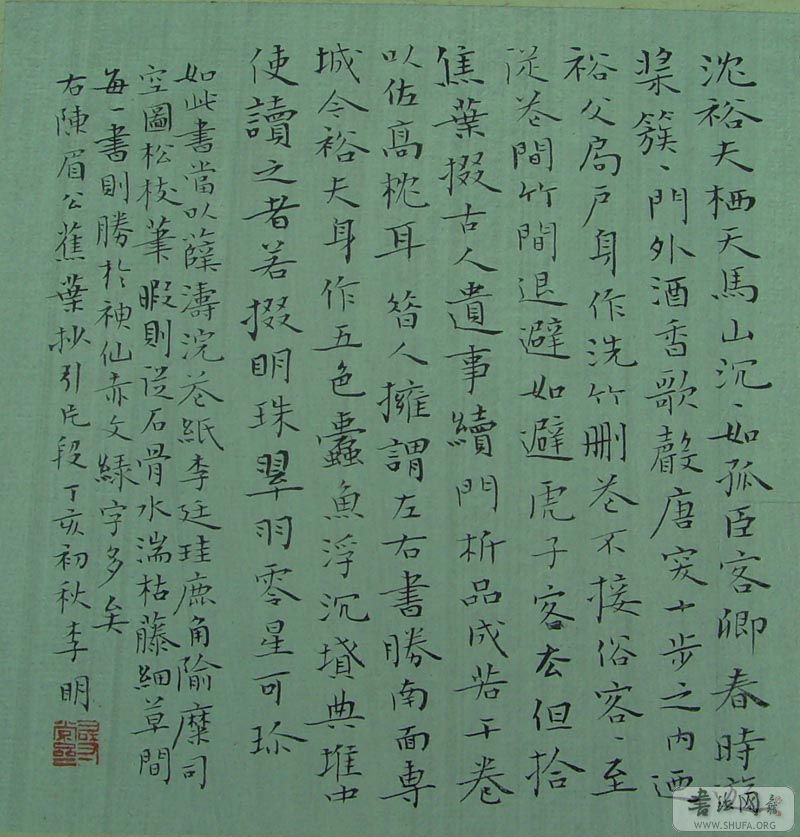 沈裕夫栖天馬山沉、如孤臣客卿春時遊
槳簇、門外酒香歌聲唐突十步之内迺
裕父扃戶身作洗竹删花不接俗客、至
從花間竹間退避如避虎子客去但拾
焦葉掇古人遺事續門析品成若干卷
以佐高枕耳昔人擁謂左右書勝南面專
城今裕夫身作五色蠹魚浮沉墳典堆中
使讀之者若掇明珠翠羽零星可珎
如此書當以薛濤浣花紙李廷珪鹿角隃糜司
空圖松枝筆暇則從石骨水湍枯藤細草間
每一書則勝於神仙赤文綠字多矣
右陳眉公蕉葉抄引片段丁亥初秋李明
書法网
WWW.SHUFA.ORG